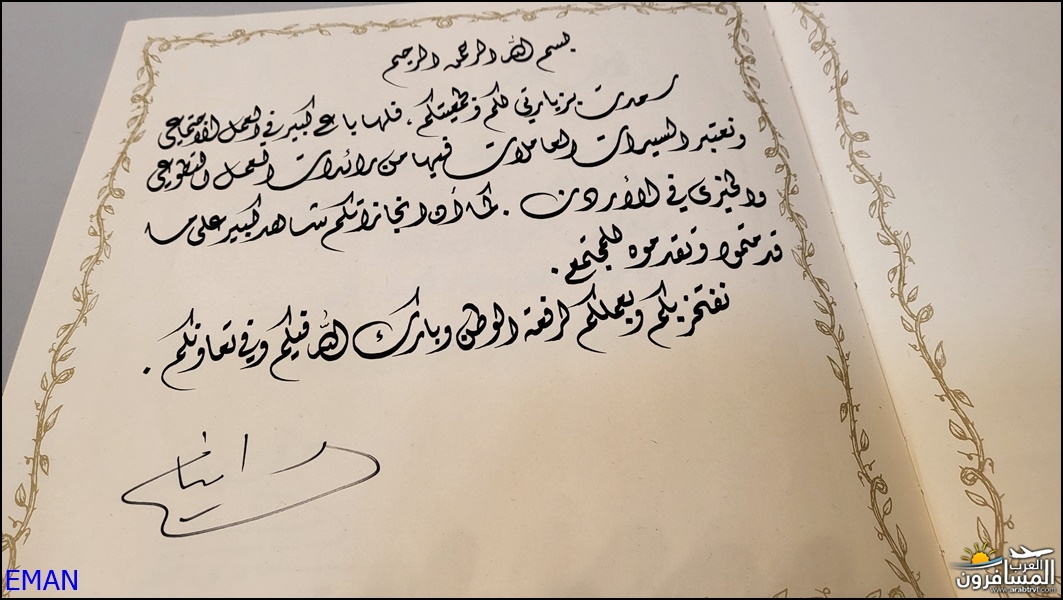 بسم الله الرحمن الرحيم
سعدت بزيارتي لكم ولجمعيتكم، فلها باع كبير في العمل الاجتماعي
ونعتبر السيدات العاملات فيها من رائدات العمل التطوعي
والخيري في الأردن. كما أن انجازاتكم شاهد كبير على ما
قدمتموا وتقدموه للمجتمع.
نفتخر بكم وبعملكم لرفعة الوطن وبارك الله فيكم وفي تعاونكم.
رانيا
EMAN
العرب
المسافرون
www.arabtrvl.com